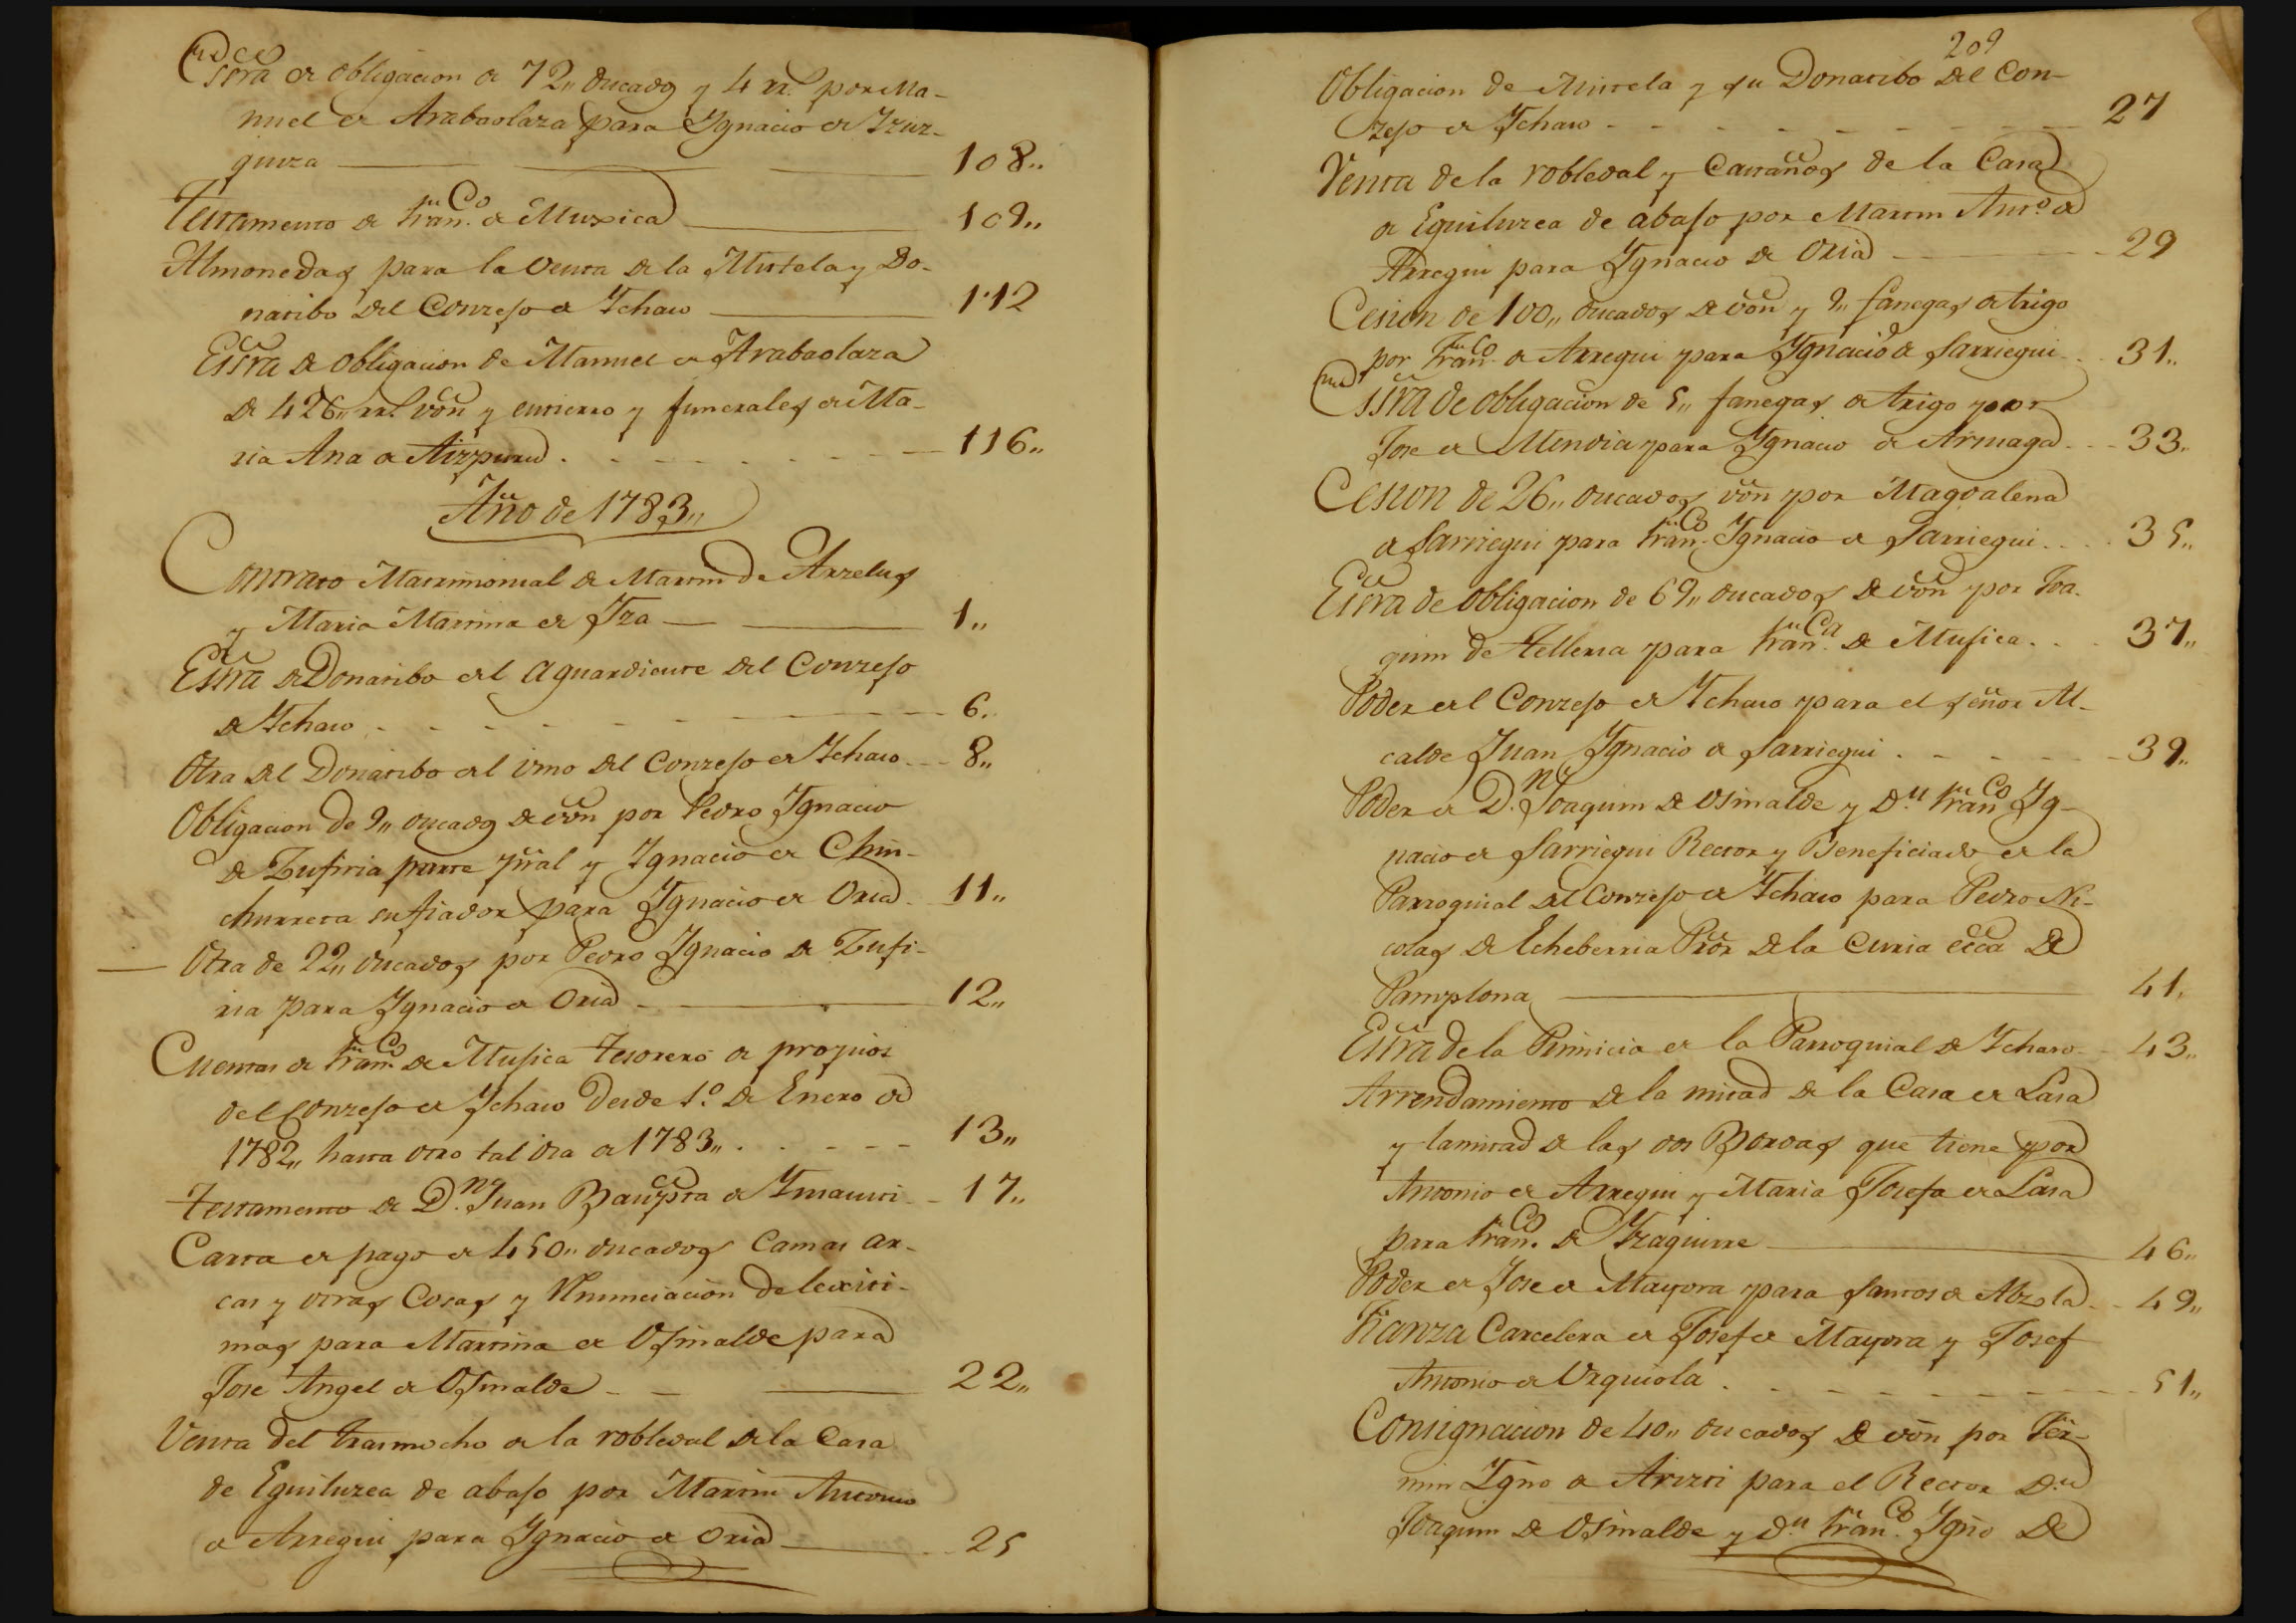 Essra de obligacion de 72,, ducados y 4 rr.s por Ma-
nuel de Arabaolaza para Ygnacio de Yzuz-
quiza 108,,
Testamento de Fran.co de Muxica 109,,
Almonedas para la venta de la Mistela y Do-
natibo del Conzejo de Ychaso 112
Essra de obligacion de Manuel de Arabaolaza
de 426,, rr.s von y entierro y funerales de Ma-
ria Ana de Aizpuru 116,,
Año de 1783,,
Contrato Matrimonial de Martin de Arzelus
y Maria Martina de Yza 1,,
Essra de Donatibo del Aguardiente del Conzejo
de Ychaso 6,,
Otra del Donatibo del vino del Conzejo de Ychaso 8,,
Obligacion de 9,, ducados de von por Pedro Ygnacio
de Zufiria parte pñal y Ygnacio de Chin-
churreta su fiador para Ygnacio de Oria 11,,
Otra de 22,, ducados por Pedro Ygnacio de Zufi-
ria para Ygnacio de Oria 12,,
Cuentas de Fran.co de Mujica tesorero de propios
del Conzejo de Ychaso desde 1.o de Enero de
1782,, hasta otro tal dia de 1783,, 13,,
Testamento de D.n Juan Baupta de Ymausti 17,,
Carta de pago de 450,, ducados Camas ar-
cas y otras Cosas y Rnunciacion de lexiti-
mas para Martina de Osinalde para
Jose Angel de Osinalde 22,,
Venta del trasmocho de la robledal de la Casa
de Eguiluzea de abajo por Martin Antonio
de Arregui para Ygnacio de Oria 25
209
Obligacion de Mistela y su Donatibo del Con-
zejo de Ychaso 27
Venta de la robledal y Castaños de la Casa
de Eguiluzea de abajo por Martin Anto de
Arregui para Ygnacio de Oria 29
Cesion de 100,, ducados de von y 9,, fanegas de trigo
por Fran.co de Arregui para Ygnacio de Sarriegui 31,,
Essra de obligacion de 5,, fanegas de trigo por
Jose de Mendia para Ygnacio de Armaga 33,,
Cesion de 26,, ducados von por Magdalena
de Sarriegui para Fran.co Ygnacio de Sarriegui 35,,
Essra de obligacion de 69,, ducados de von por Joa-
quin de Telleria para Fran.ca de Mujica 37,,
Poder del Conzejo de Ychaso para el señor Al-
calde Juan Ygnacio de Sarriegui 39,,
Poder de D.n Joaquim de Osinalde y D.n Fran.co Yg-
nacio de Sarriegui Rector y Beneficiado de la
Parroquial del Conzejo de Ychaso para Pedro Ni-
colas de Echeberria Pror de la Curia ecca de
Pamplona 41,
Essra de la Primicia de la Parroquial de Ychaso 43,,
Arrendamiento de la mitad de la Casa de Lasa
y la mitad de las dos Bordas que tiene por
Antonio de Arregui y Maria Josefa de Lasa
para Fran.co de Yzaguirre 46,,
Poder de Jose de Mayora para Santos de Alzola 49,,
Fianza Carcelera de Josef de Mayora y Josef
Antonio de Urquiola 51,,
Consignacion de 40,, ducados de von por Fer-
min Ygno de Arizti para el Rector D.n
Joaquim de Osinalde y D.n Fran.co Ygno de